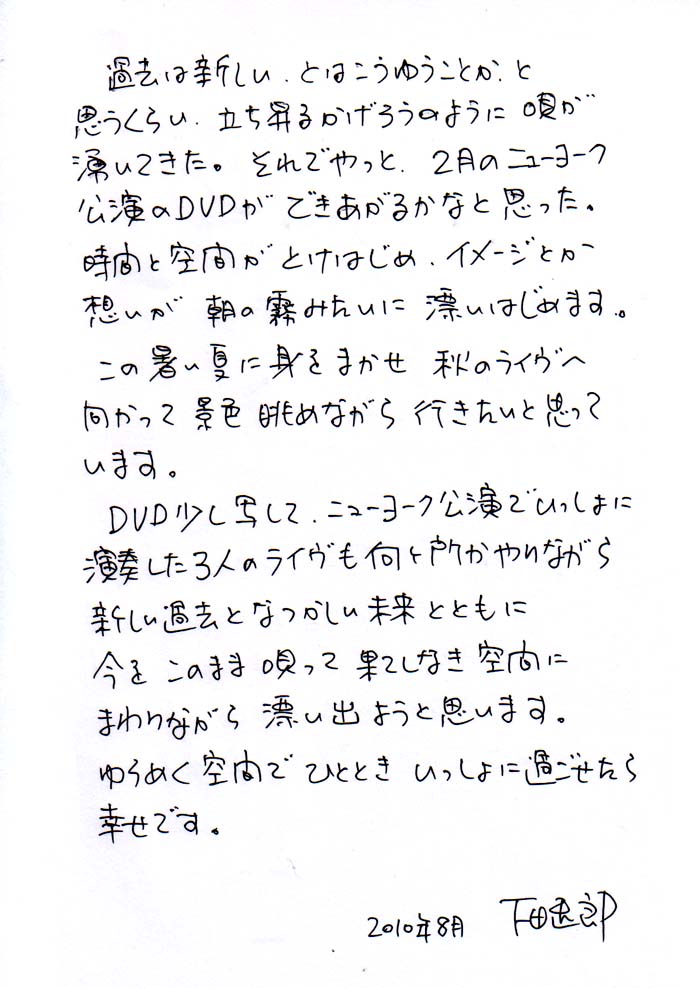 過去は新しい、とはこうゆうことか、と
思うくらい、立ち昇るかげろうのように 唄が
湧いてきた。それでやっと、2月のニューヨーク
公演のDVDが できあがるかなと思った。
時間と空間がとけはじめ、イメージとか
想いが 朝の霧みたいに 漂いはじめます。
この暑い夏に身をまかせ 秋のライヴへ
向かって 景色 眺めながら 行きたいと思って
います。
DVD少し写して、ニューヨーク公演でいっしょに
演奏した3人のライヴも何ヶ所かやりながら
新しい過去となつかしい未来とともに
今を このまま 唄って 果てしなき空間に
まわりながら 漂い出ようと思います。
ゆらめく空間で ひととき いっしょに過ごせたら
幸せです。
2010年8月 下田逸郎